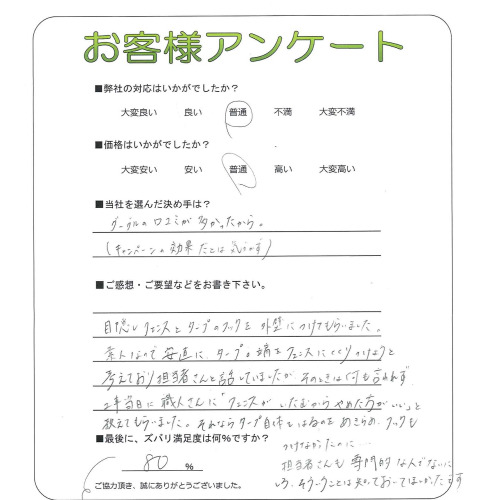 お客様アンケート
■弊社の対応はいかがでしたか?
大変良い 良い 普通 不満 大変不満
■価格はいかがでしたか?
大変安い 安い 普通 高い 大変高い
■当社を選んだ決め手は?
グーグルの口コミが多かったから。
(キャンペーンの効果だとは気づかず)
■ご感想・ご要望などをお書き下さい。
目隠しフェンスとタープのフックを外壁につけてもらいました。
素人なので安直に、タープの端をフェンスにくくりつけようと
考えており担当者さんと話していましたが、そのときは何も言われず、
工事当日に職人さんに「フェンスがいたむからやめた方がいい」と
教えてもらいました。それならタープ自体をはるのをあきらめ、フックも
つけなかったのに…
■最後に、ズバリ満足度は何%ですか?
担当者さんも専門的な人でないに
80 %
しろ、そういうことは知っておいてほしかったです
ご協力頂き、誠にありがとうございました。